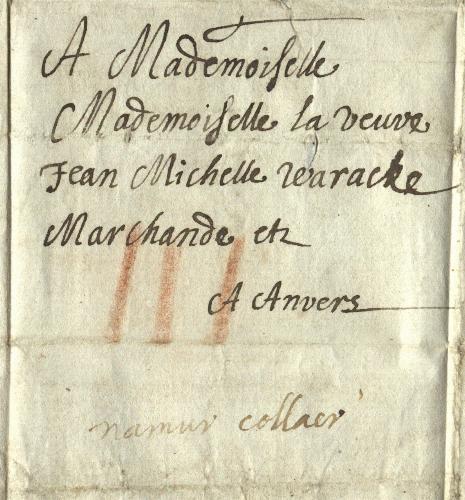 A Mademoiselle
Mademoiselle la veuve
Jean Michelle waracke
Marchande etz
A Anvers
namur collaer